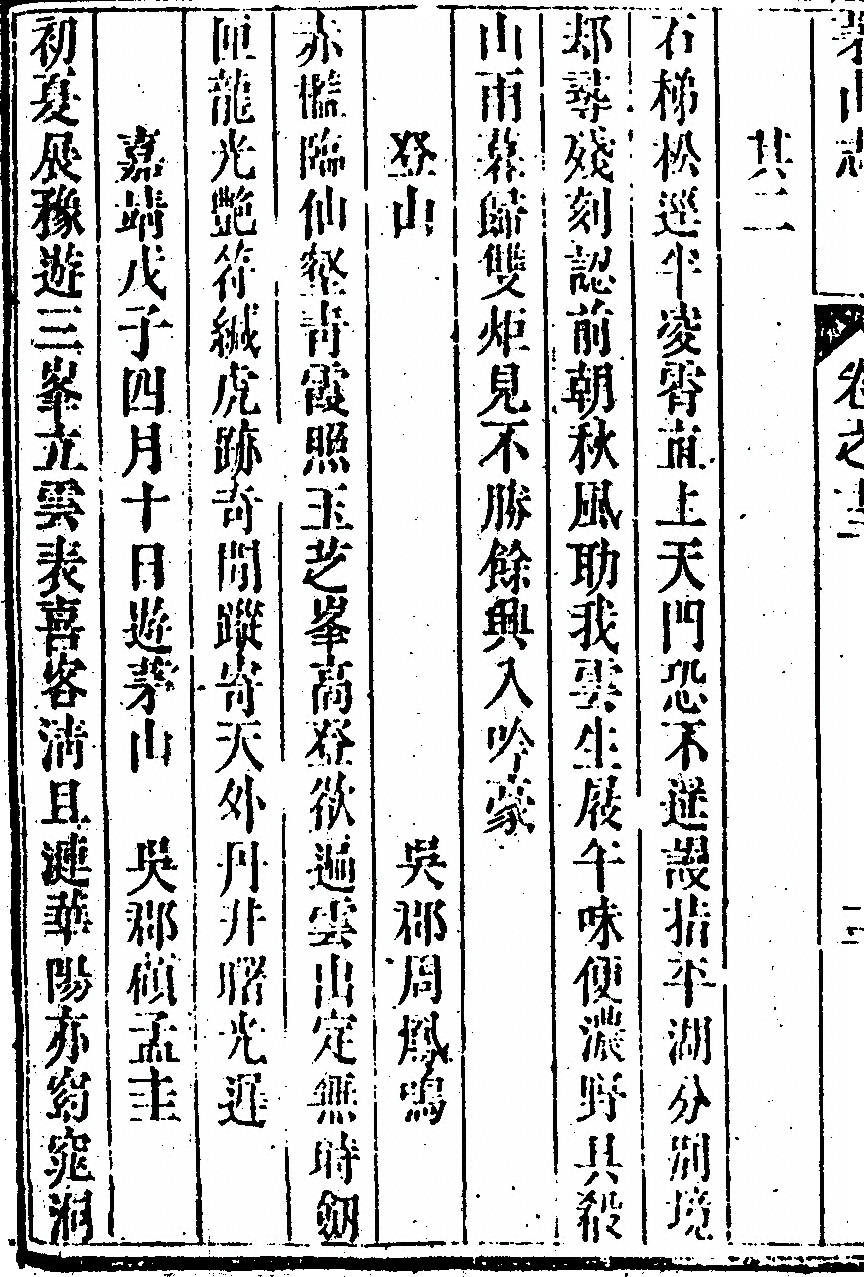 茅山志 卷之
其二
石梯松逕半凌霄直上天門恐不遥謾指平湖分別境
却尋殘刻認前朝秋風助我雲生屐午味便濃野具殽
山雨暮歸雙炬見不勝餘興入吟蒙
登山 吳郡周鳳鳴
赤檻臨仙壑青霞照玉芝峯高登欲遍雲出定無時劒
匣龍光艷符緘虎跡奇閒蹤寄天外丹井曙光遲
嘉靖戊子四月十日遊茅山 吳郡顧孟圭
初夏展豫遊三峯立雲表喜客清且漣華陽亦窈窕洞